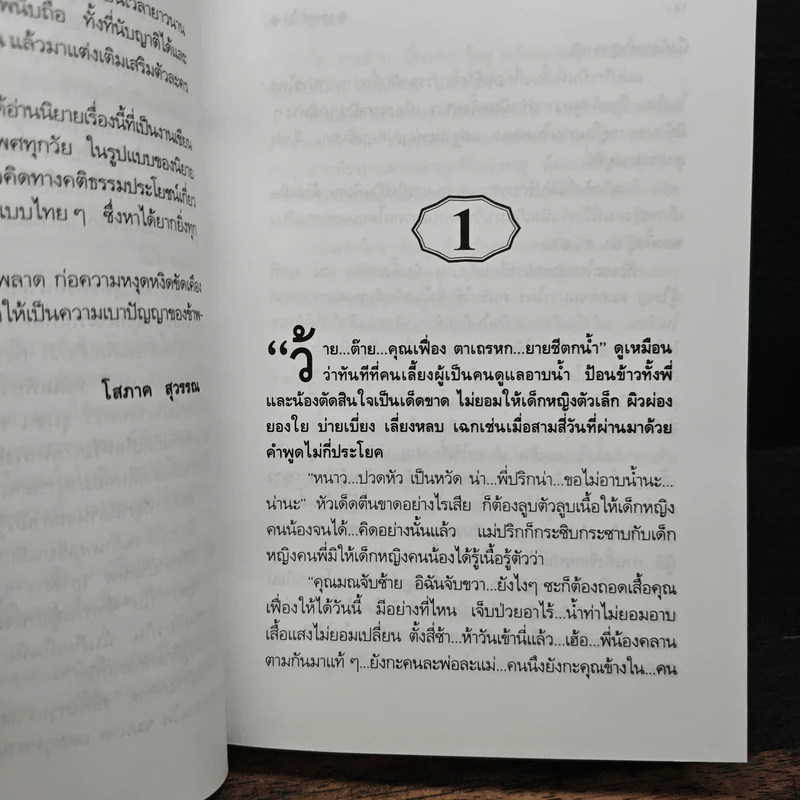 เป็นเวลายาวนาน
นับถือ ทั้งที่นับญาติได้และ
แล้วมาแต่งเติมเสริมตัวละคร
ได้อ่านนิยายเรื่องนี้ที่เป็นงานเขียน
เพศทุกวัย ในรูปแบบของนิยาย
คิดทางคติธรรมประโยชน์เกี่ยว
แบบไทยๆ ซึ่งหาได้ยากยิ่งทุก
พลาด ก่อความหงุดหงิดขัดเคือง
ให้เป็นความเบาปัญญาของข้าพ-
โสภาค สุวรรณ
1
“ว้าย...ต๊าย...คุณเฟื่อง ตาเถรหก...ยายชีตกน้ำ” ดูเหมือน
ว่าทันทีที่คนเลี้ยงผู้เป็นคนดูแลอาบน้ำ ป้อนข้าวทั้งพี่
และน้องตัดสินใจเป็นเด็ดขาด ไม่ยอมให้เด็กหญิงตัวเล็ก ผิวผ่อง
ยองใย บ่ายเบี่ยง เลี่ยงหลบ เฉกเช่นเมื่อสามสี่วันที่ผ่านมาด้วย
คำพูดไม่กี่ประโยค
“หนาว...ปวดหัว เป็นหวัด น่า...พี่ปริกน่า...ขอไม่อาบน้ำนะ...
น่านะ” หัวเด็ดตีนขาดอย่างไรเสีย ก็ต้องลูบตัวลูบเนื้อให้เด็กหญิง
คนน้องจนได้...คิดอย่างนั้นแล้ว แม่ปริกก็กระซิบกระซาบกับเด็ก
หญิงคนพี่มิให้เด็กหญิงคนน้องได้รู้เนื้อรู้ตัวว่า
“คุณมณจับซ้าย อิฉันจับขวา...ยังไงๆ ซะก็ต้องถอดเสื้อคุณ
เฟื่องให้ได้วันนี้ มีอย่างที่ไหน เจ็บป่วยอาไร้...น้ำท่าไม่ยอมอาบ
เสื้อแสงไม่ยอมเปลี่ยน ตั้งสี่ซ้า...ห้าวันเข้านี่แล้ว...เฮ้อ...พี่น้องคลาน
ตามกันมาแท้ ๆ...ยังกะคนละพ่อละแม่...คนนึงยังกะคุณข้างใน...คน